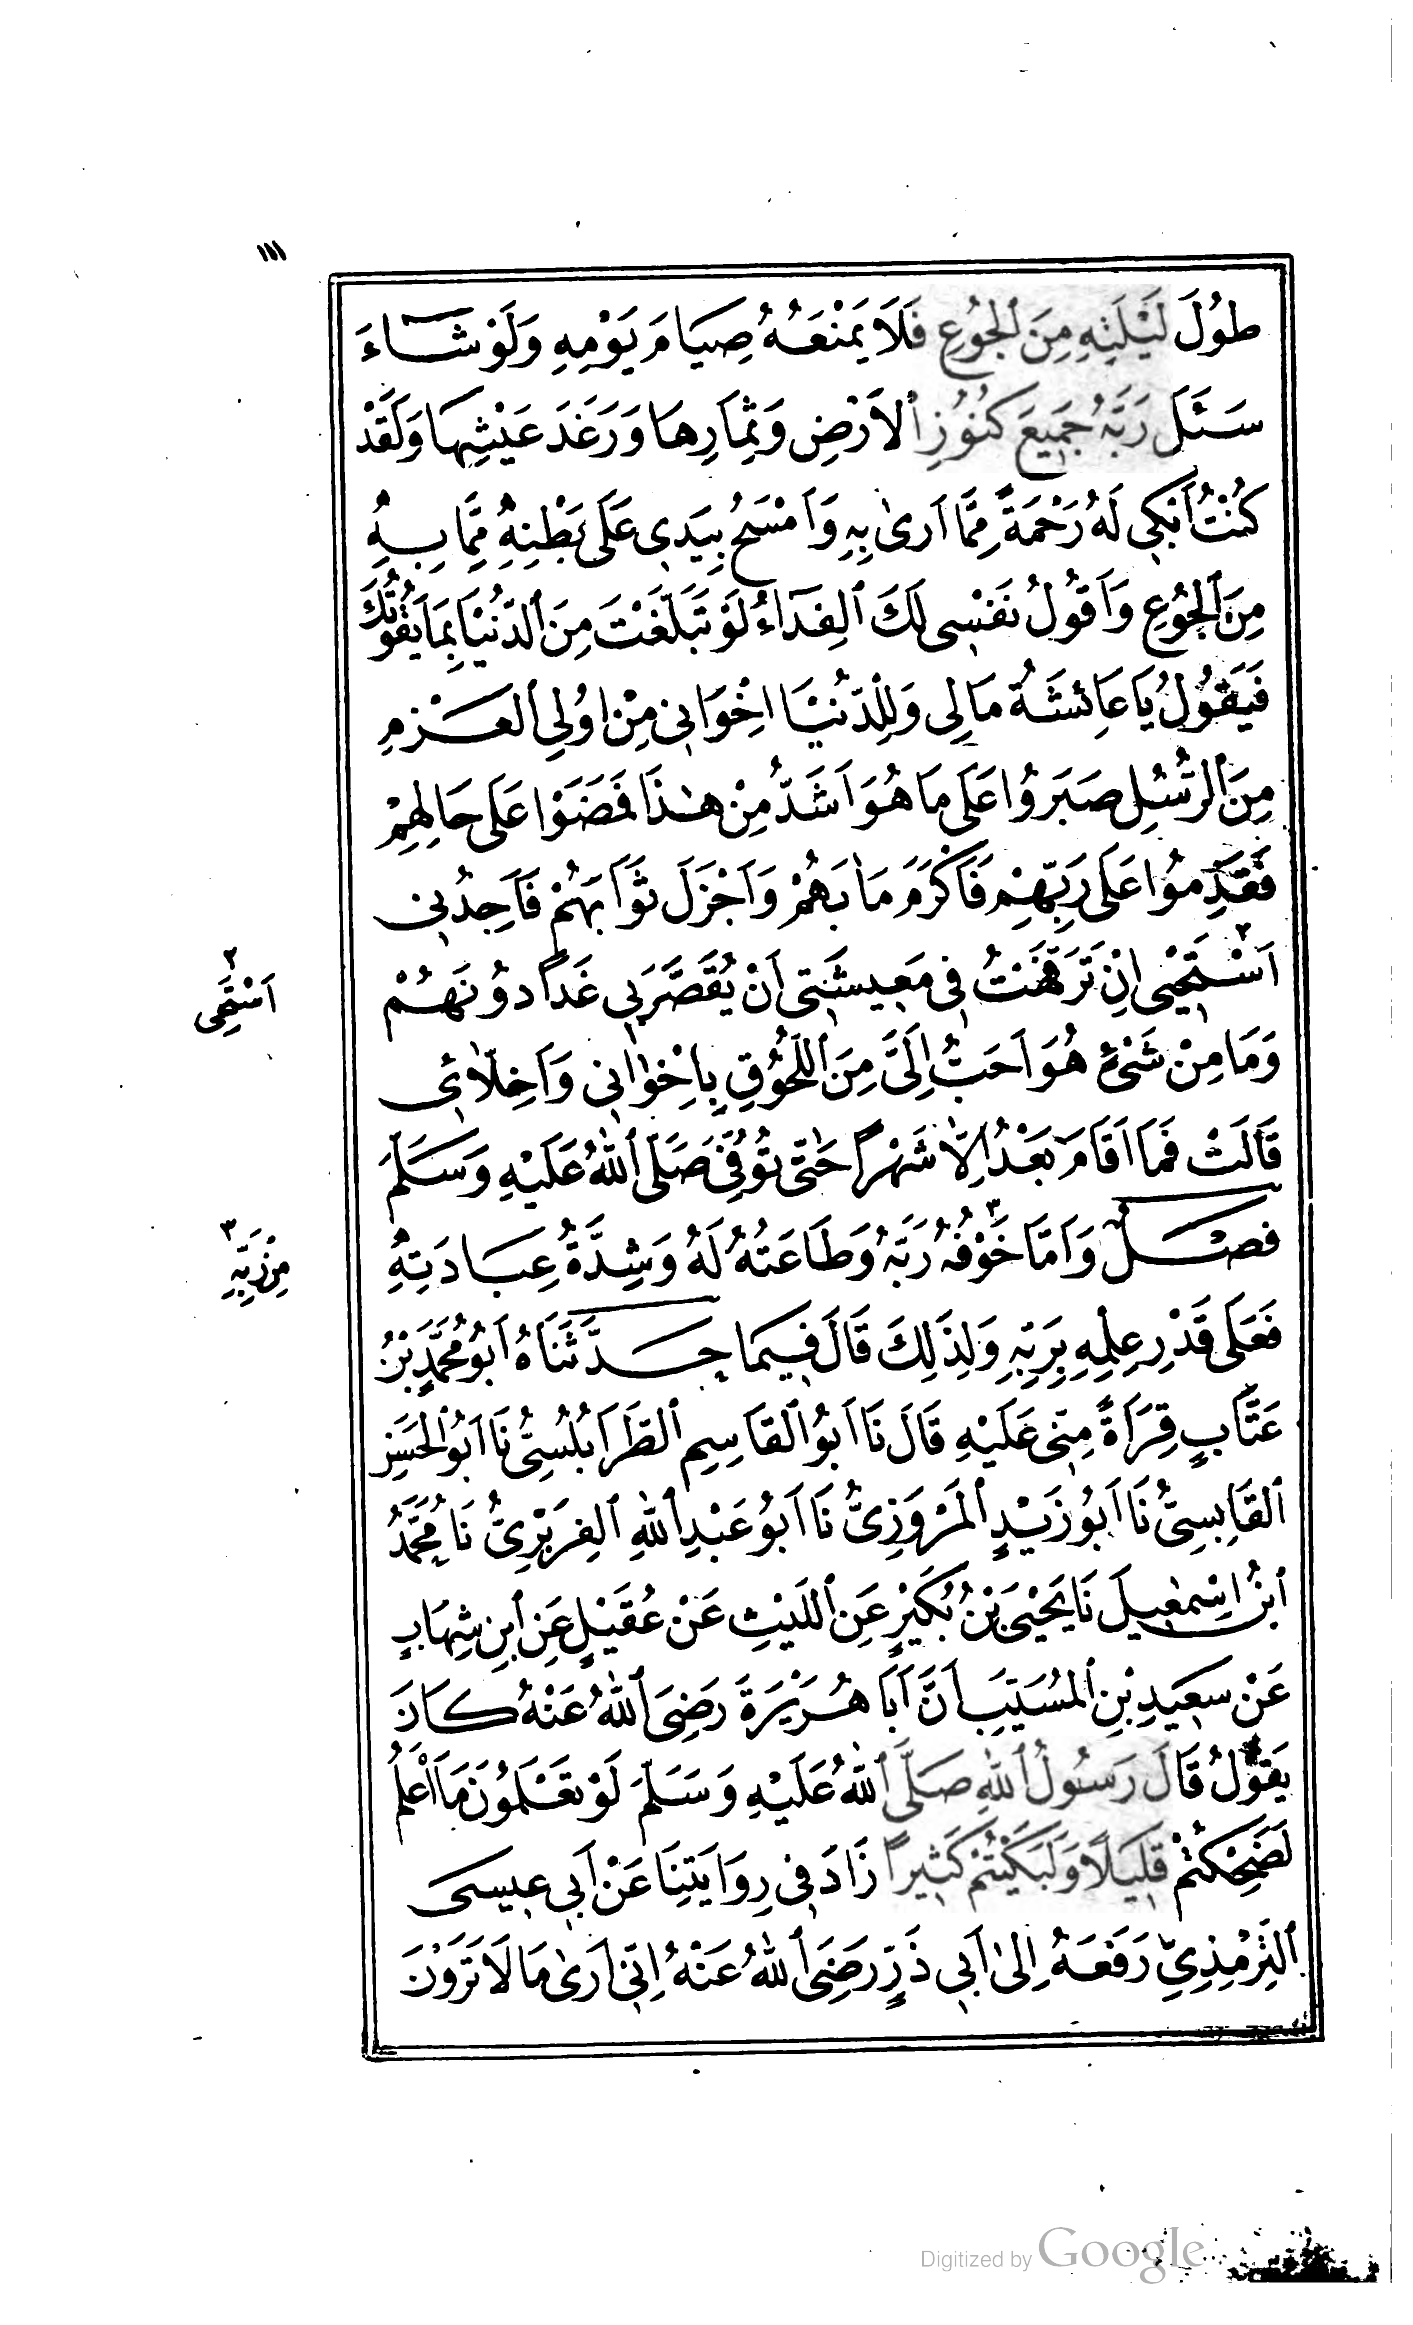 ١١١
طُولَ لَيْلَتِهِ مِنَ ٱلْجُوعِ فَلَا يَمْنَعُهُ صِيَامَ يَوْمِهِ وَلَوْ شَاءَ
سَئَلَ رَبَّهُ جَمِيعَ كُنُوزِ ٱلْاَرْضِ وَثِمَارِهَا وَرَغَدَ عَيْشِهَا وَلَقَدْ
كُنْتُ اَبْكِي لَهُ رَحْمَةً مِمَّا اَرىٰ بِهِ وَاَمْسَحُ بِيَدِي عَلَى بَطْنِهِ مِمَّا بِهِ
مِنَ ٱلْجُوعِ وَاَقُولُ نَفْسِي لَكَ ٱلْفِدَاءُ لَوْ تَبَلَّغْتَ مِنَ ٱلدُّنْيَا بِمَا يَقُوتُكَ
فَيَقُولُ يَا عَائِشَةُ مَا لِي وَلِلدُّنْيَا اِخْوَانِي مِنْ اُولِي ٱلْعَزْمِ
مِنَ ٱلرُّسُلِ صَبَرُوا عَلَى مَا هُوَ اَشَدُّ مِنْ هٰذَا فَمَضَوْا عَلَى حَالِهِمْ
فَقَدِمُوا عَلَى رَبِّهِمْ فَاَكْرَمَ مَاٰبَهُمْ وَاَجْزَلَ ثَوَابَهُمْ فَاَجِدُنِي
اَسْتَحْيِي اِنْ تَرَفَّهْتُ فِي مَعِيشَتِي اَنْ يُقَصَّرَ بِي غَداً دُونَهُمْ
٢ اَسْتَحِي
وَمَا مِنْ شَيْءٍ هُوَ اَحَبُّ اِلَيَّ مِنَ ٱللُّحُوقِ بِاِخْوٰانِي وَاَخِلّٰائِي
قَالَتْ فَمَا اَقَامَ بَعْدُ اِلَّا شَهْراً حَتّٰى تُوُفِّيَ صَلَّى ٱللّٰهُ عَلَيْهِ وَسَلَّمَ
فَصْلٌ وَاَمَّا خَوْفُهُ رَبَّهُ وَطَاعَتُهُ لَهُ وَشِدَّةُ عِبَادَتِهِ
٣ مِنْ رَبِّهِ
فَعَلَى قَدْرِ عِلْمِهِ بِرَبِّهِ وَلِذٰلِكَ قَالَ فِيمَا حَدَّثَنَاهُ اَبُو مُحَمَّدِ بْنُ
عَتَّابٍ قِرَاَةً مِنِّي عَلَيْهِ قَالَ نَا اَبُو ٱلْقَاسِمِ ٱلطَّرَابُلُسِيُّ نَا اَبُو ٱلْحَسَنِ
ٱلْقَابِسِيُّ نَا اَبُو زَيْدٍ ٱلْمَرْوَزِيُّ نَا اَبُو عَبْدِ ٱللّٰهِ ٱلْفِرَبْرِيُّ نَا مُحَمَّدُ
ٱبْنُ اِسْمٰعِيلَ نَا يَحْيَى بْنُ بُكَيْرٍ عَنِ ٱللَّيْثِ عَنْ عُقَيْلٍ عَنِ ٱبْنِ شِهَابٍ
عَنْ سَعِيدِ بْنِ ٱلْمُسَيَّبِ اَنَّ اَبَا هُرَيْرَةَ رَضِيَ ٱللّٰهُ عَنْهُ كَانَ
يَقُولُ قَالَ رَسُولُ ٱللّٰهِ صَلَّى ٱللّٰهُ عَلَيْهِ وَسَلَّمَ لَوْ تَعْلَمُونَ مَا اَعْلَمُ
لَضَحِكْتُمْ قَلِيلًا وَلَبَكَيْتُمْ كَثِيراً زَادَ فِي رِوَايَتِنَا عَنْ اَبِي عِيسَى
ٱلتِّرْمِذِيِّ رَفَعَهُ اِلىٰ اَبِي ذَرٍّ رَضِيَ ٱللّٰهُ عَنْهُ اِنِّي اَرىٰ مَا لَا تَرَوْنَ
Digitized by Google